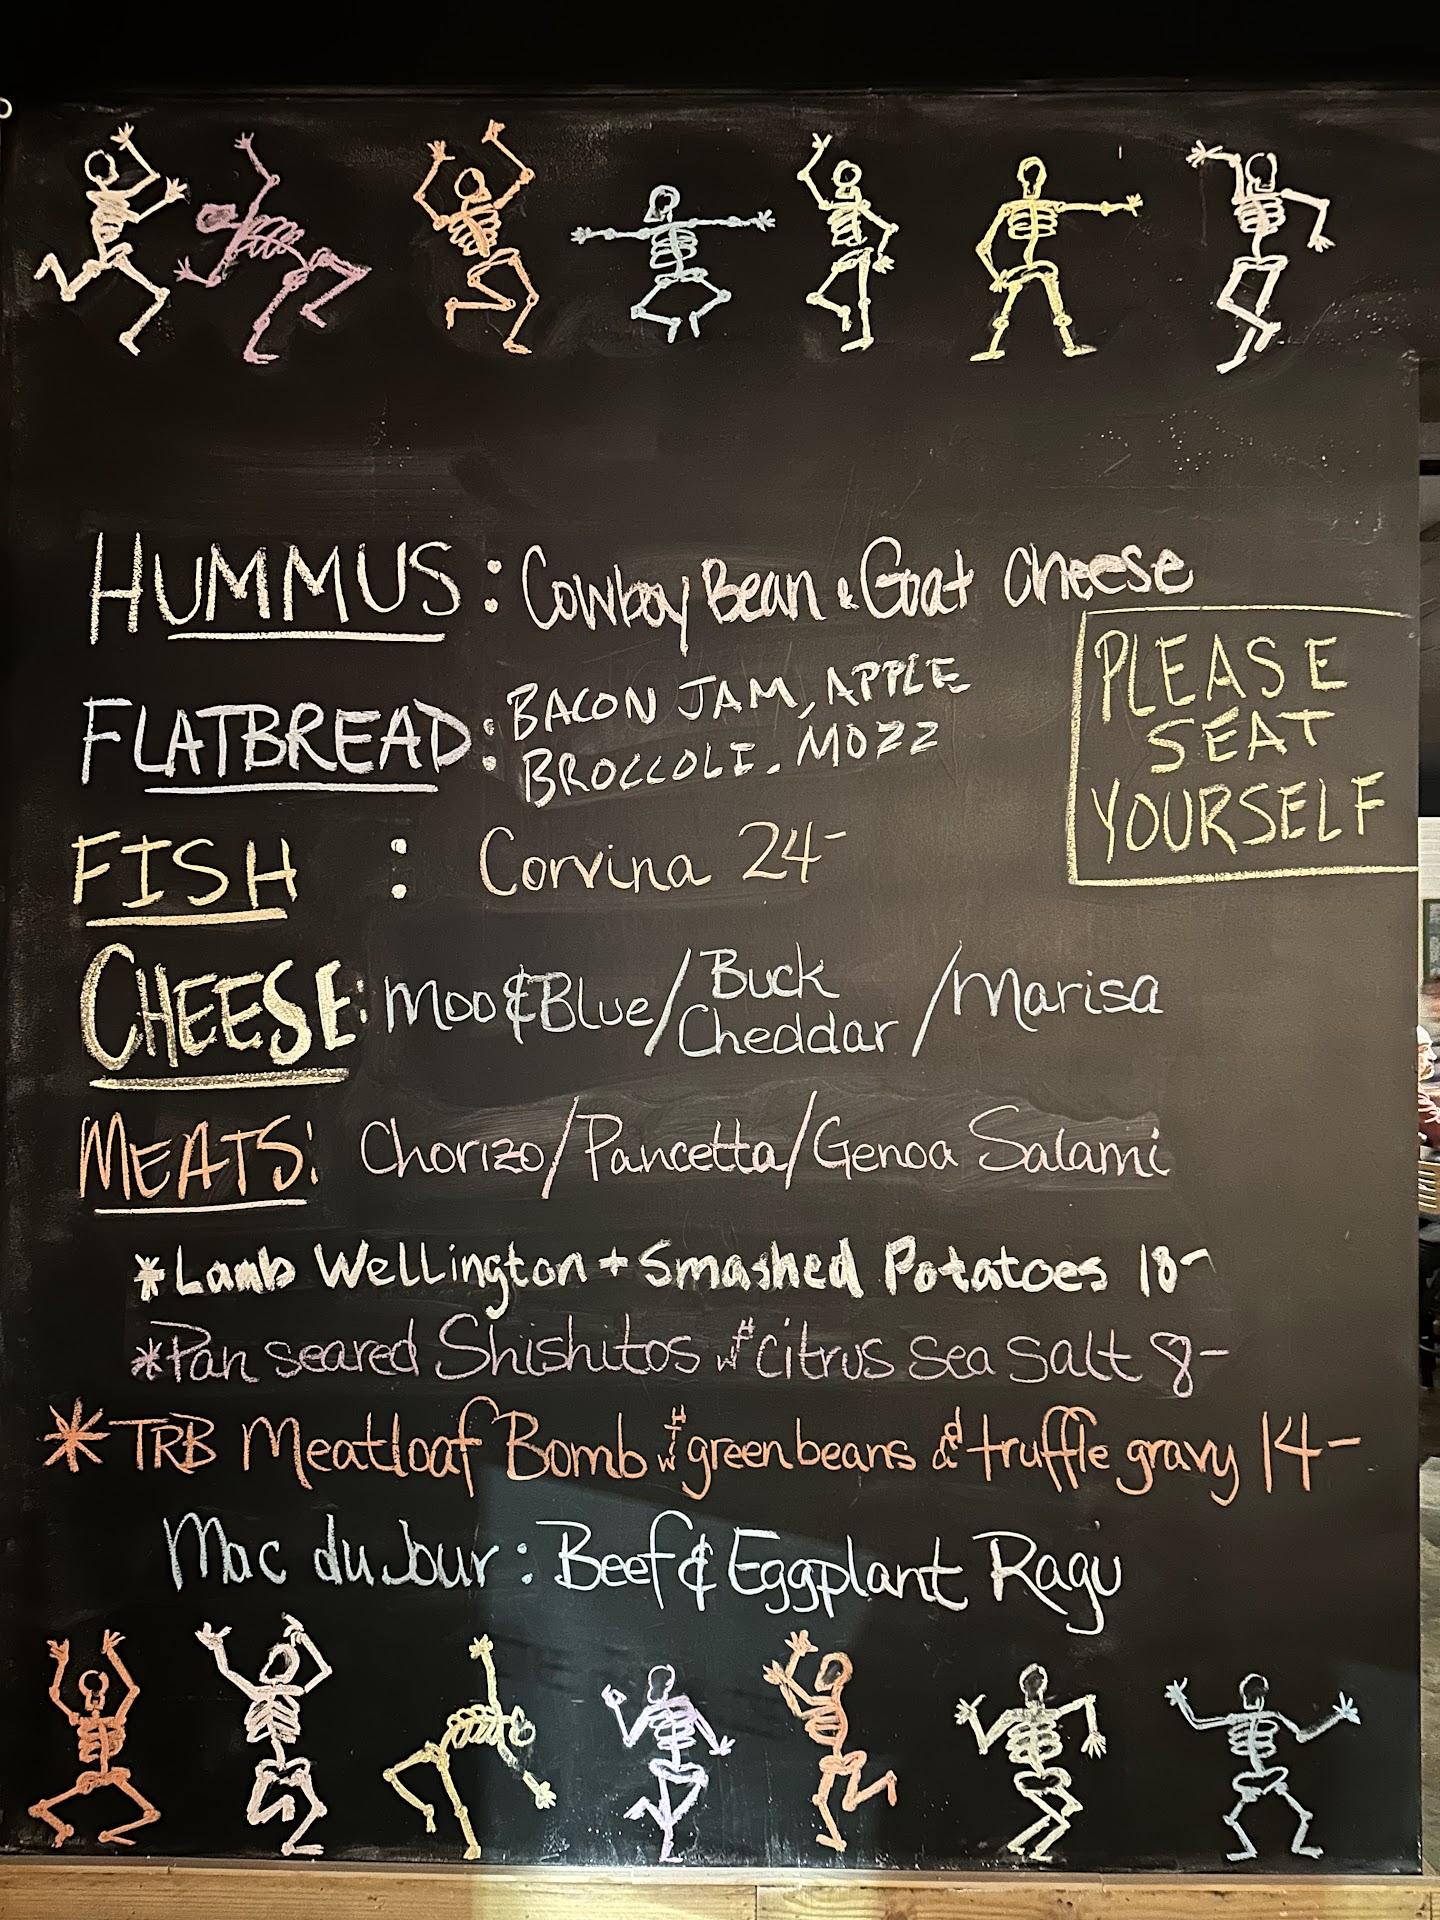 HUMMUS: Cowboy Bean & Goat Cheese
FLATBREAD: BACON JAM, APPLE
BROCCOLI, MOZZ
PLEASE
SEAT
YOURSELF
FISH : Corvina 24-
CHEESE: Moo & Blue / Buck Cheddar / Marisa
MEATS: Chorizo/Pancetta/Genoa Salami
*Lamb Wellington + Smashed Potatoes 18-
*Pan seared Shishitos w/ citrus sea salt 8-
*TRB Meatloaf Bomb with greenbeans and truffle gravy 14-
Mac du Jour: Beef & Eggplant Ragu